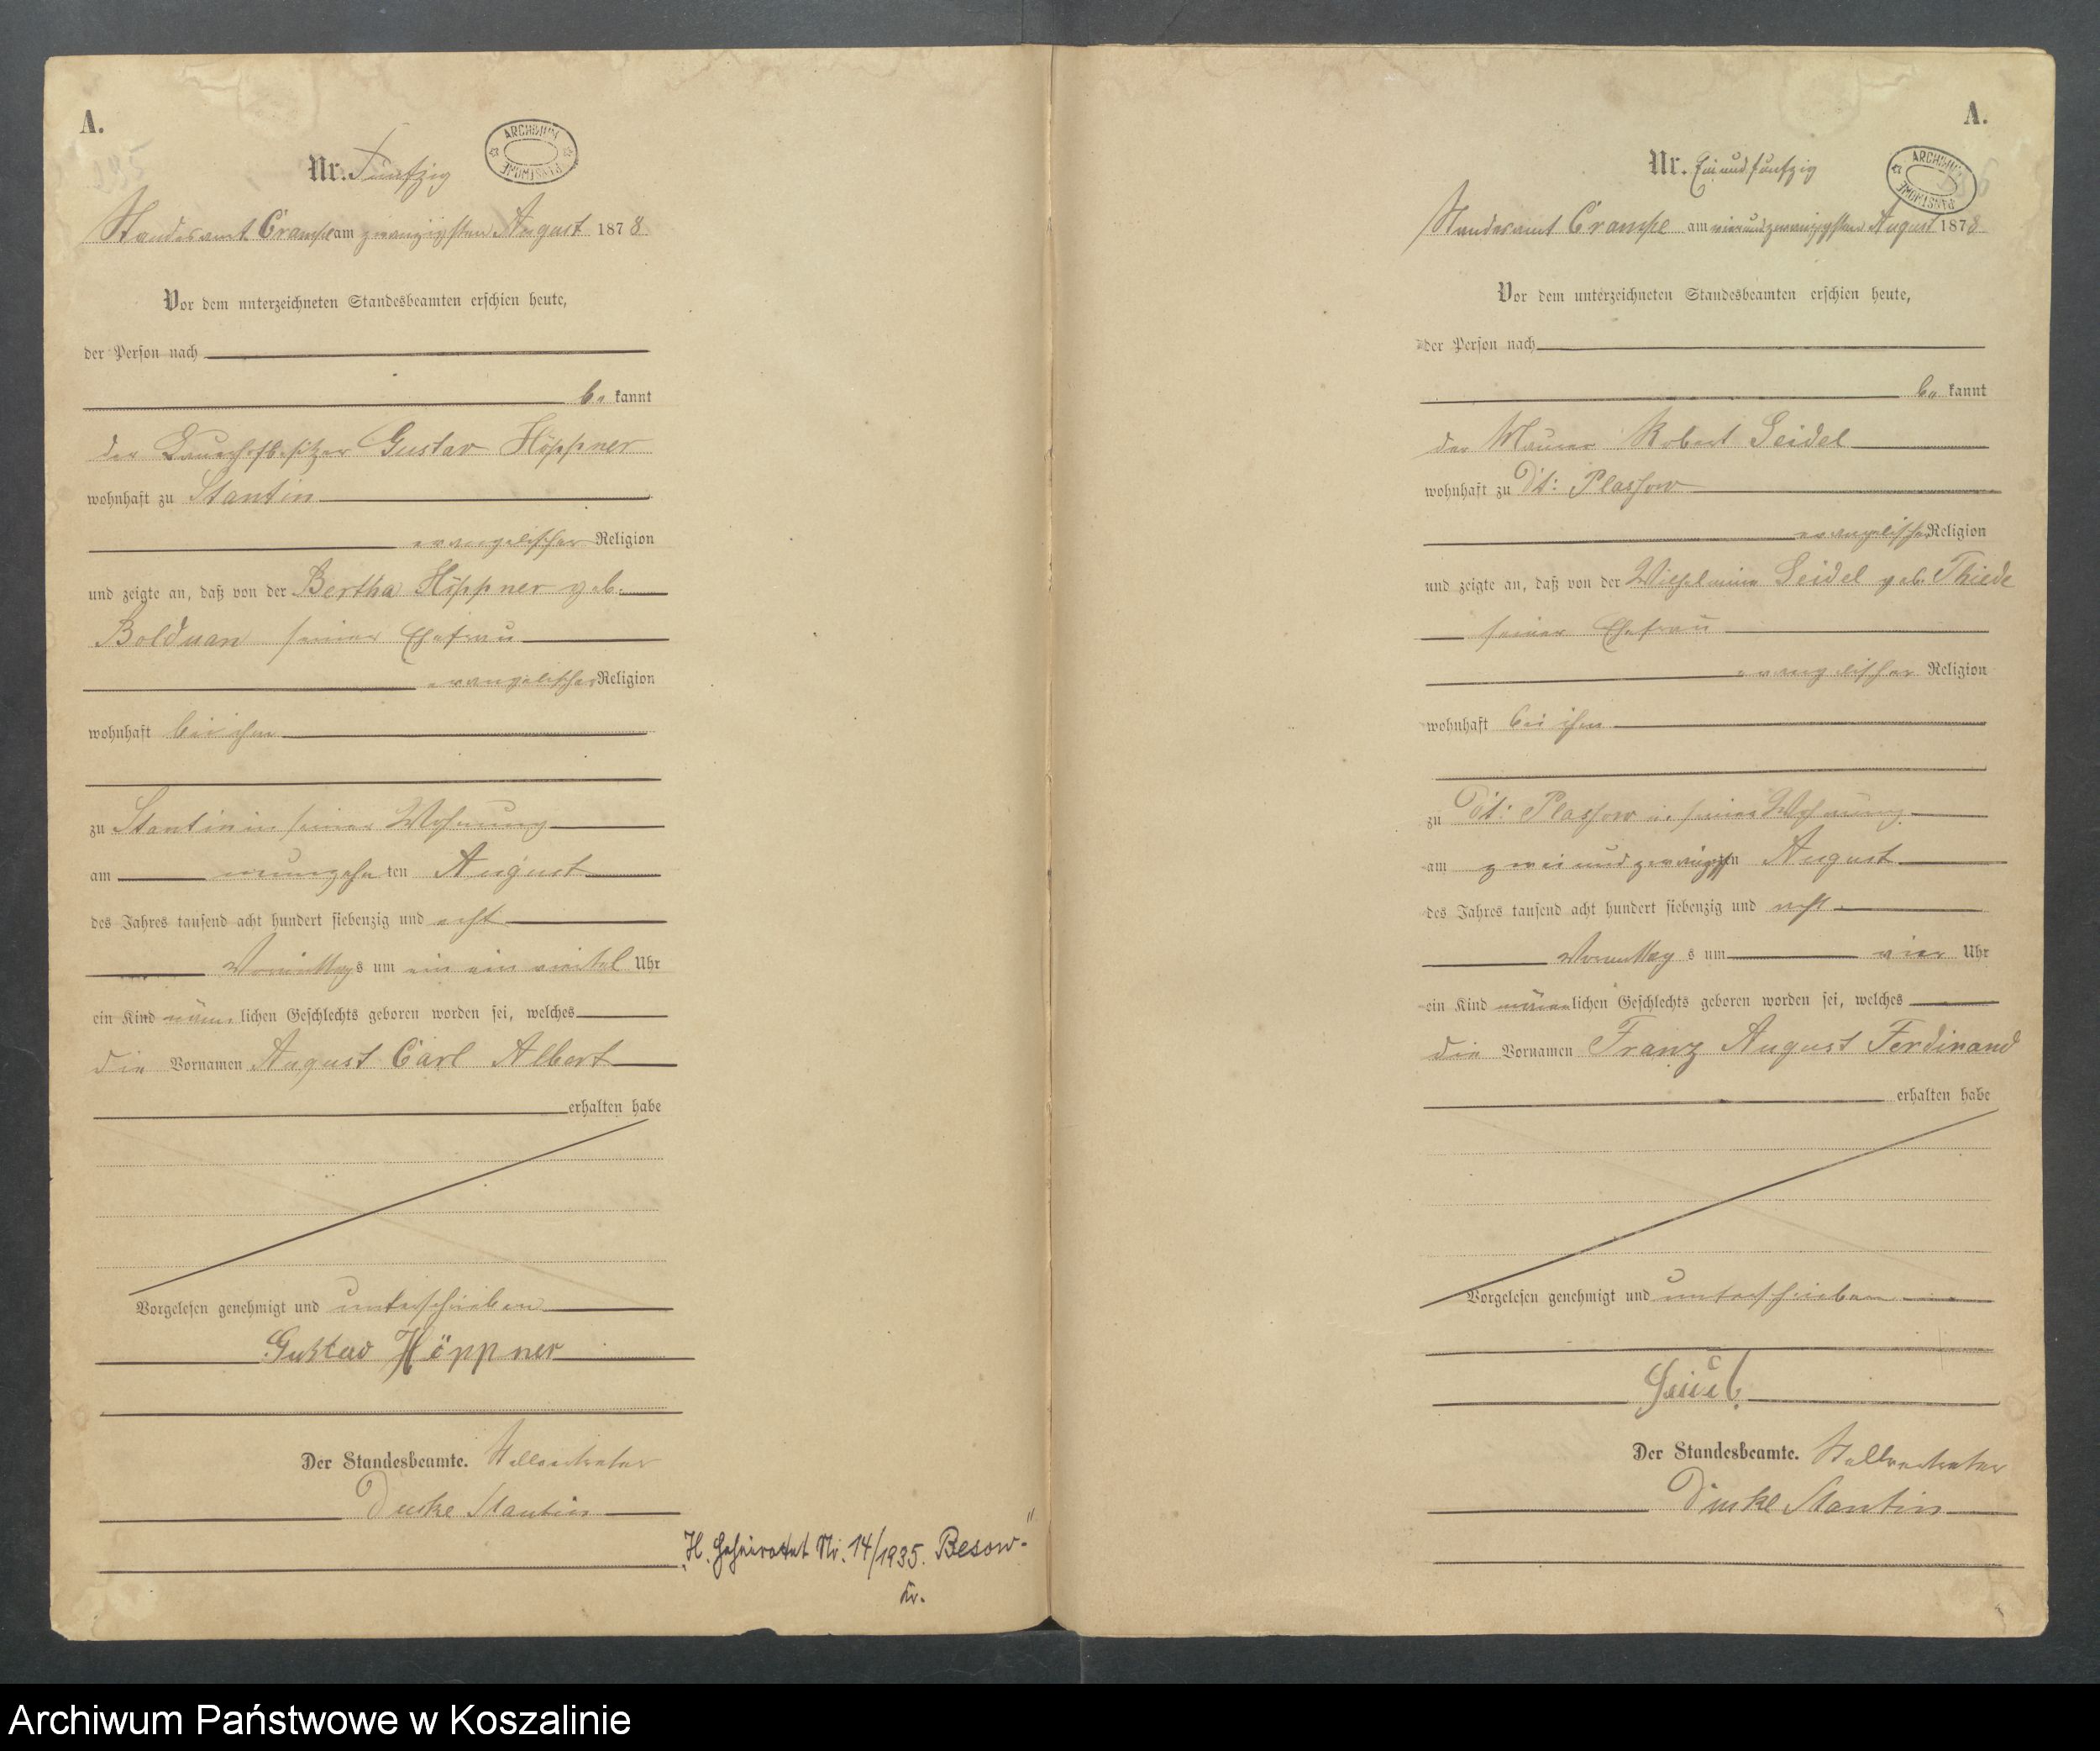 A.
Nr. Fünfzig
ARCHIWUM PAŃSTWOWE
Standesamt Crampe am zwanzigsten August 1878
Vor dem unterzeichneten Standesbeamten erschien heute,
der Person nach
be kannt
der Bauerhofbesitzer Gustav Höppner
wohnhaft zu Stantin
evangelischer Religion
und zeigte an, daß von der Bertha Höppner geb.
Bolduan seiner Ehefrau
evangelischer Religion
wohnhaft bei ihm
zu Stantin in seiner Wohnung
am neunzehnten August
des Jahres tausend acht hundert siebenzig und acht
Vormittags um ein ein viertel Uhr
ein Kind männlichen Geschlechts geboren worden sei, welches
die Vornamen August Carl Albert
erhalten habe
Vorgelesen genehmigt und unterschrieben
Gustav Höppner
Der Standesbeamte. Stellvertreter
Duske Stantin
"H. geheiratet Nr. 14/1935. Besow-"
A.
Nr. Einundfünfzig
ARCHIWUM PAŃSTWOWE
Standesamt Crampe am vierundzwanzigsten August 1878
Vor dem unterzeichneten Standesbeamten erschien heute,
der Person nach
be kannt
der Maurer Robert Seidel
wohnhaft zu Dt: Plassow
evangelischer Religion
und zeigte an, daß von der Wilhelmine Seidel geb. Thiede
seiner Ehefrau
evangelischer Religion
wohnhaft bei ihm
zu Dt: Plassow in seiner Wohnung
am zweiundzwanzigsten August
des Jahres tausend acht hundert siebenzig und acht
Vormittag s um vier Uhr
ein Kind männlichen Geschlechts geboren worden sei, welches
die Vornamen Franz August Ferdinand
erhalten habe
Vorgelesen genehmigt und unterschrieben
Seidel
Der Standesbeamte. Stellvertreter
Duske Stantin
Archiwum Państwowe w Koszalinie